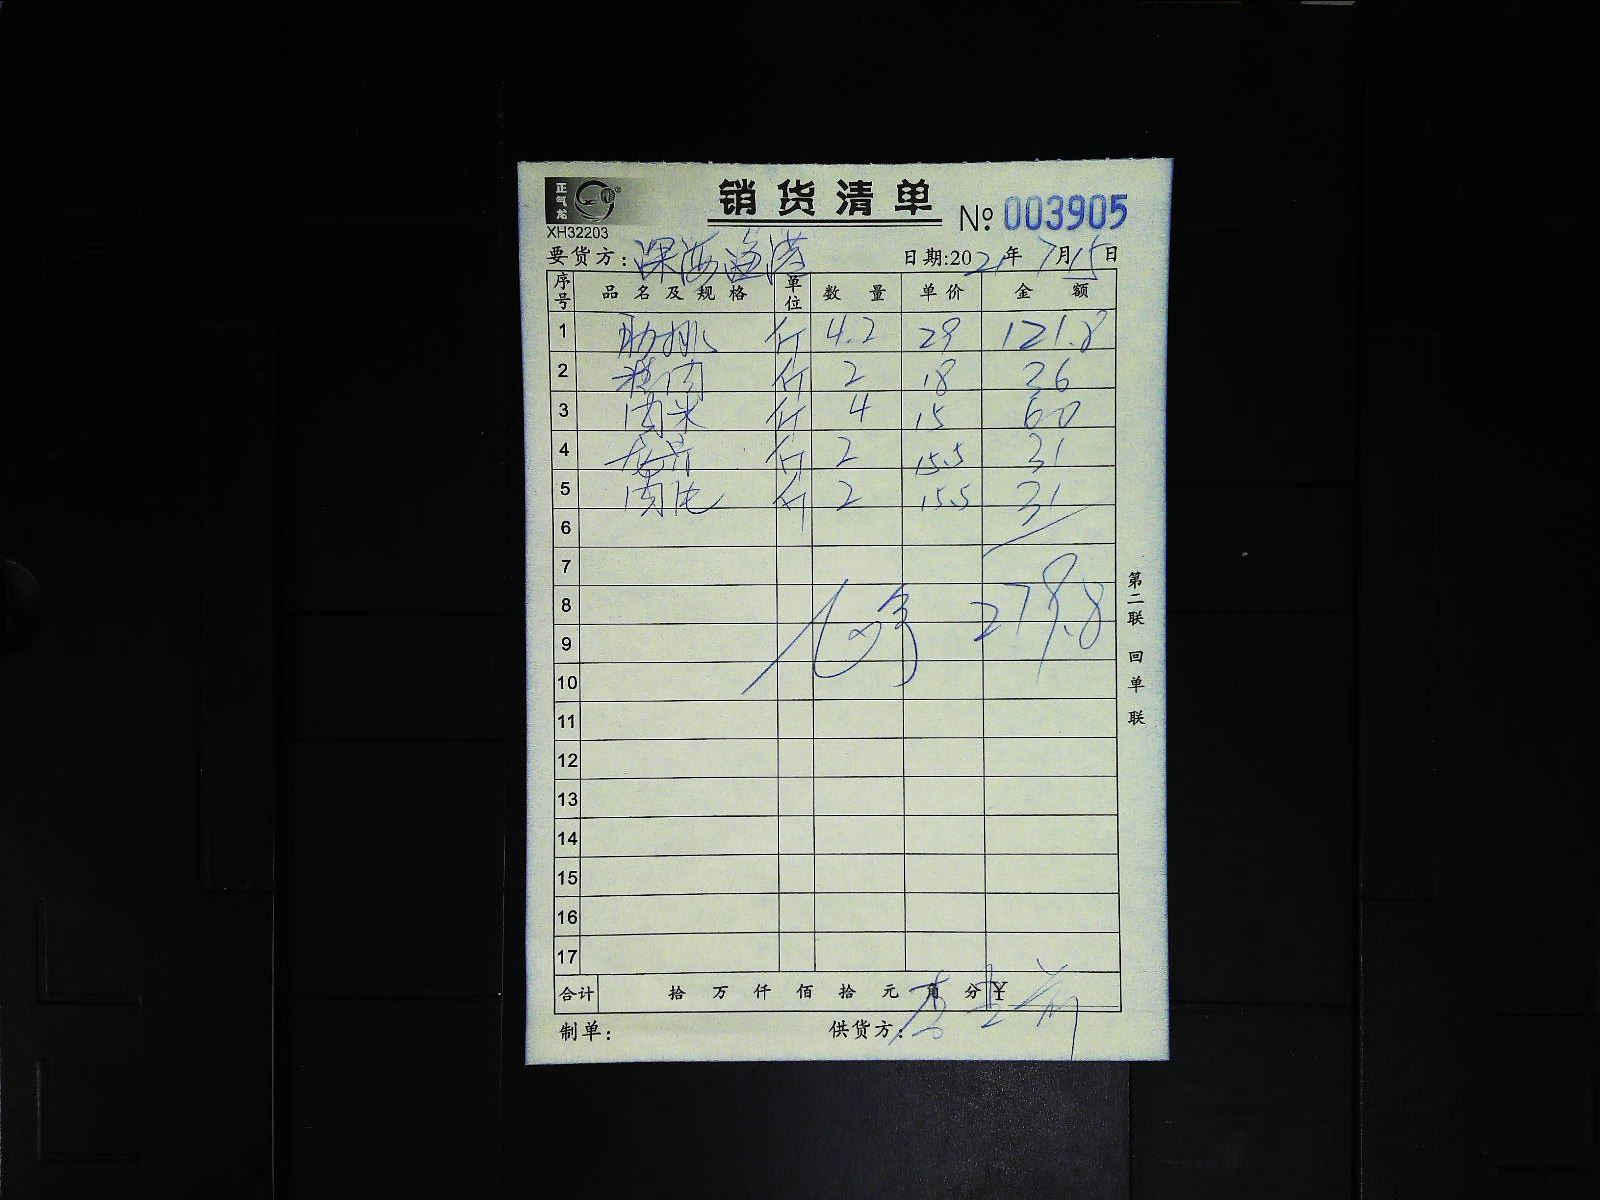 正气龙
®
XH32203
销货清单
№ 003905
要货方: 深海渔港 日期:2021年7月15日
序号 品名及规格 单位 数量 单价 金额
1 肋排 斤 4.2 29 121.8
2 精肉 斤 2 18 36
3 肉米 斤 4 15 60
4 斤 2 15.5 31
5 斤 2 15.5 31
6
7
8 279.8
9
10
11
12
13
14
15
16
17
合计 拾 万 仟 佰 拾 元 角 分 ¥
制单: 供货方:
第二联 回单联